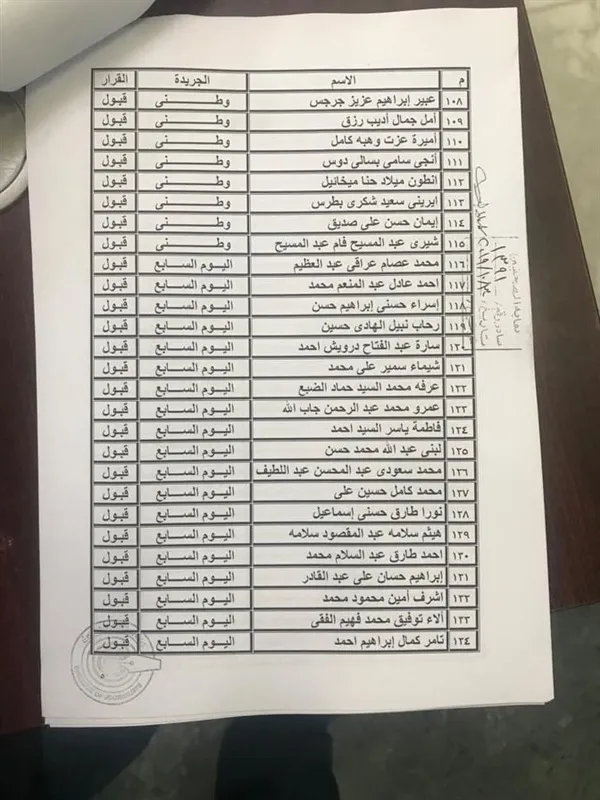 م الاسم الجريدة القرار
١٠٨ عبير إبراهيم عزيز جرجس وطنى قبول
١٠٩ أمل جمال أديب رزق وطنى قبول
١١٠ أميرة عزت وهبه كامل وطنى قبول
١١١ أنجى سامى بسالى دوس وطنى قبول
١١٢ انطون ميلاد حنا ميخائيل وطنى قبول
١١٣ ايرينى سعيد شكرى بطرس وطنى قبول
١١٤ إيمان حسن على صديق وطنى قبول
١١٥ شيرى عبد المسيح فام عبد المسيح وطنى قبول
١١٦ محمد عصام عراقى عبد العظيم اليوم السابع قبول
١١٧ احمد عادل عبد المنعم محمد اليوم السابع قبول
١١٨ إسراء حسنى إبراهيم حسن اليوم السابع قبول
١١٩ رحاب نبيل الهادى حسين اليوم السابع قبول
١٢٠ سارة عبد الفتاح درويش احمد اليوم السابع قبول
١٢١ شيماء سمير على محمد اليوم السابع قبول
١٢٢ عرفه محمد السيد حماد الضبع اليوم السابع قبول
١٢٣ عمرو محمد عبد الرحمن جاب الله اليوم السابع قبول
١٢٤ فاطمة ياسر السيد احمد اليوم السابع قبول
١٢٥ لبنى عبد الله محمد حسن اليوم السابع قبول
١٢٦ محمد سعودى عبد المحسن عبد اللطيف اليوم السابع قبول
١٢٧ محمد كامل حسين على اليوم السابع قبول
١٢٨ نورا طارق حسنى إسماعيل اليوم السابع قبول
١٢٩ هيثم سلامه عبد المقصود سلامه اليوم السابع قبول
١٣٠ احمد طارق عبد السلام محمد اليوم السابع قبول
١٣١ إبراهيم حسان على عبد القادر اليوم السابع قبول
١٣٢ اشرف أمين محمود محمد اليوم السابع قبول
١٣٣ آلاء توفيق محمد فهيم الفقى اليوم السابع قبول
١٣٤ تامر كمال إبراهيم احمد اليوم السابع قبول
نقابة الصحفيين
صادر رقم ١٣٩١